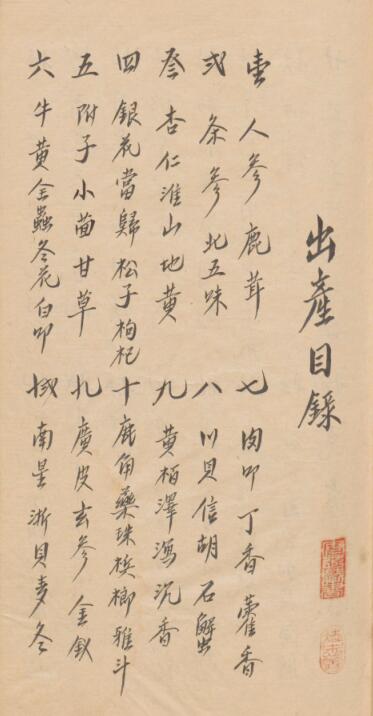 出產目錄
壹 人參鹿茸
弍 条參北五味
叄 杏仁淮山地黄
四 銀花當歸松子枸杞
五 附子小茴甘草
六 牛黄全蟲冬花白叩
七 肉叩丁香藿香
八 川貝信胡石蟹
九 黄栢澤瀉沉香
十 鹿角藥珠梹榔雅斗
十一 廣皮玄參金釵
十弍 南星浙貝麦冬